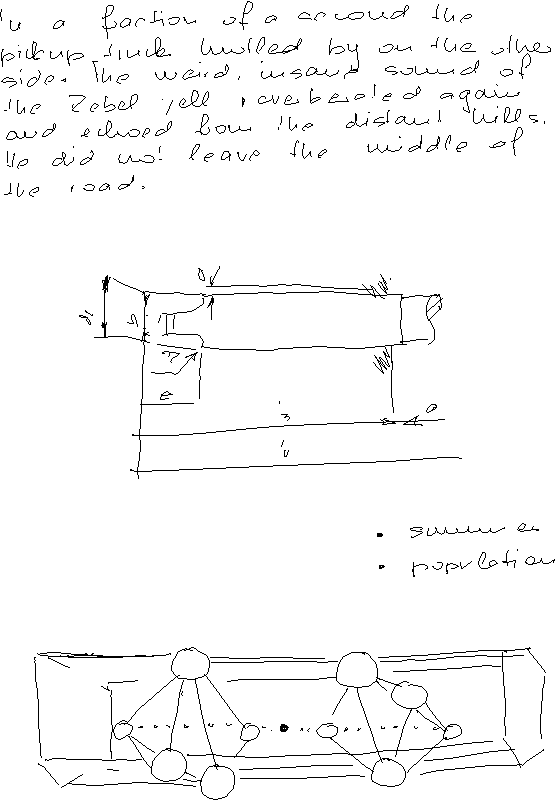 In a fraction of a second the
pickup truck hurtled by on the other
side. The weird, insane sound of
the Rebel yell reverberated again
and echoed from the distant hills.
He did not leave the middle of
the road.
d1
e
a
• summer
• population